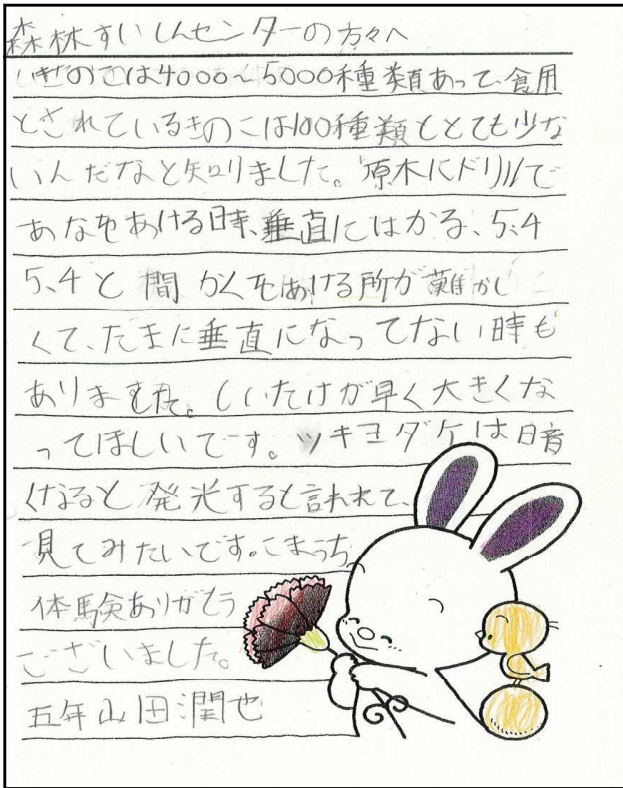 森林すいしんセンターの方々へ
きのこは4000～5000種類あって、食用
とされているきのこは100種類ととても少な
いんだなと知りました。原木にドリルで
あなをあける時、垂直にはかる、5、4
5、4と間かくをあける所が難かし
くて、たまに垂直になってない時も
ありました。しいたけが早く大きくな
ってほしいです。ツキヨダケは暗
くなると発光すると言われて、
見てみたいです。こまうち
体験ありがとう
ございました。
五年山田潤也